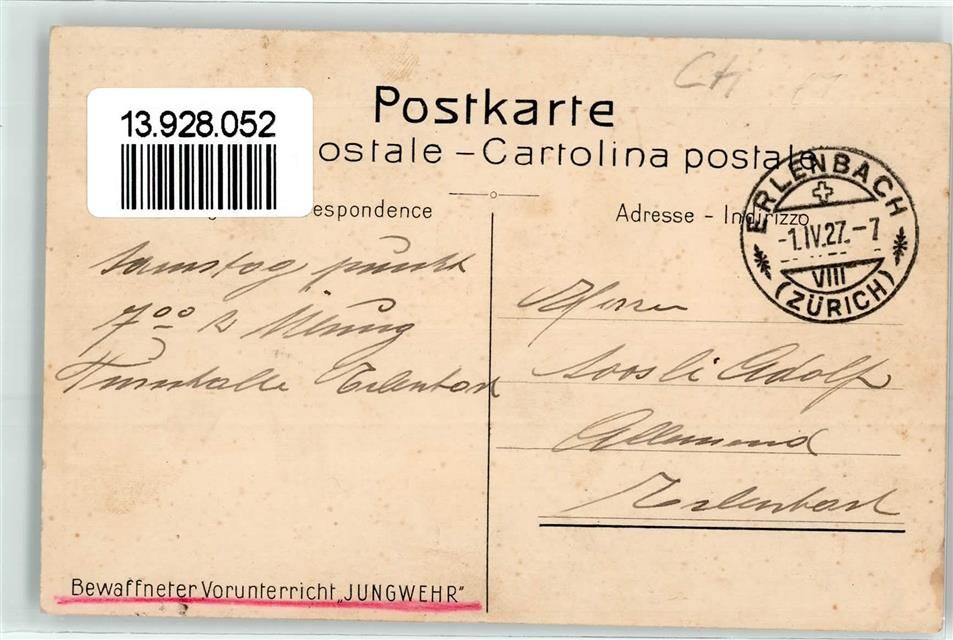 CH
Postkarte
13.928.052
ostale – Cartolina postale
espondence
Adresse – Indirizzo
ERLENBACH
-1.IV.27.-7
VIII
(ZÜRICH)
Samstag punkt
7⁰⁰ h Übung
Turnhalle Erlenbach
Herrn
Loosli Adolf
Allemend
Erlenbach
Bewaffneter Vorunterricht „JUNGWEHR"